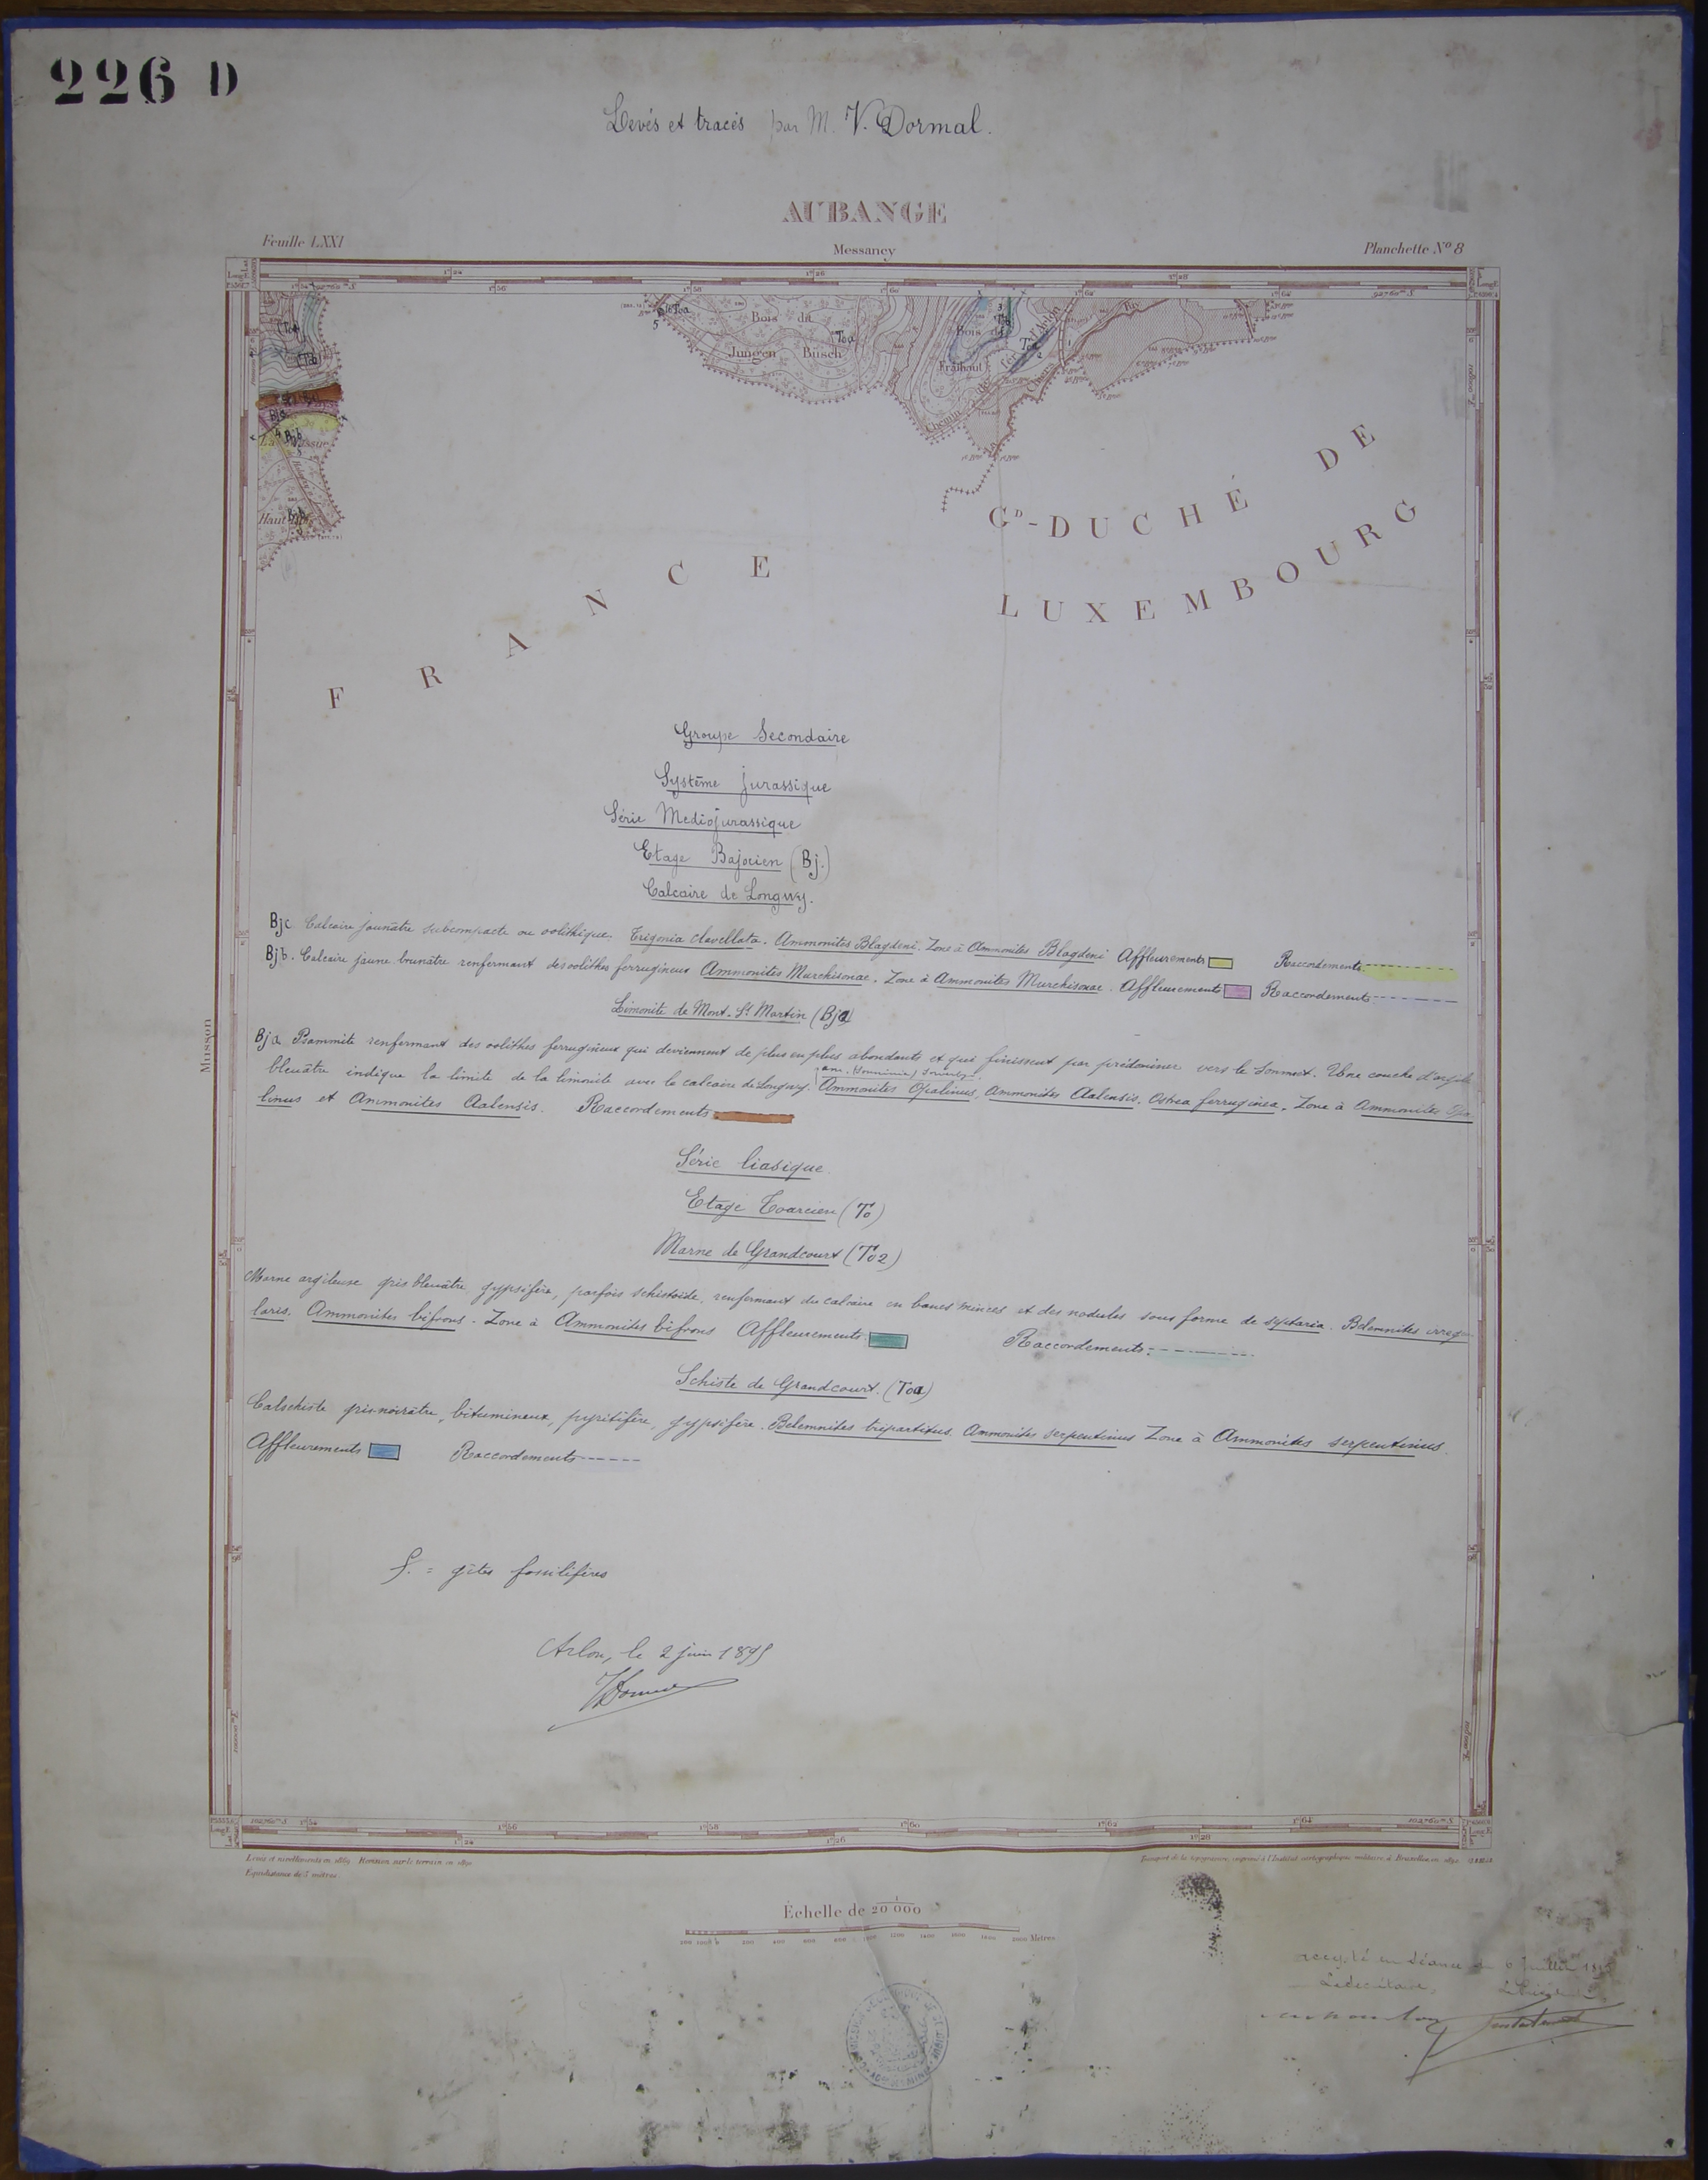 226 D
Levés et tracés par M. V. Dormal.
AUBANGE
Feuille LXXI
Messancy
Planchette Nº 8
Bois dit
Jungen Busch
Bois de
Fraihaut
Chemin de fer d'Arlon
Toa
Toa
Toa
Bja
Bjb
Haut
Musson
FRANCE
GD-DUCHÉ DE
LUXEMBOURG
Groupe Secondaire
Système jurassique
Série Mediojurassique
Etage Bajocien (Bj.)
Calcaire de Longwy.
Bjc Calcaire jaunâtre subcompacte ou oolithique. Trigonia clavellata. Ammonites Blagdeni. Zone à Ammonites Blagdeni Affleurements Raccordements
Bjb. Calcaire jaune brunâtre renfermant des oolithes ferrugineux Ammonites Murchisonae. Zone à Ammonites Murchisonae. Affleurements Raccordements
Limonite de Mont-St Martin (Bja)
Bja Psammite renfermant des oolithes ferrugineux qui deviennent de plus en plus abondants et qui finissent par prédominer vers le sommet. Une couche d'argile
bleuâtre indique la limite de la limonite avec le calcaire de Longwy. Ammonites Opalinus, Ammonites Aalensis. Ostrea ferruginea. Zone à Ammonites Opa
linus et Ammonites Aalensis. Raccordements
Série liasique
Etage Toarcien (To)
Marne de Grandcourt (To2)
Marne argileuse gris bleuâtre, gypsifère, parfois schistoïde, renfermant du calcaire en bancs minces et des nodules sous forme de septaria. Belemnites irregu
laris. Ammonites bifrons - Zone à Ammonites bifrons Affleurements Raccordements
Schiste de Grandcourt. (Toa)
Calschiste gris-noirâtre, bitumineux, pyritifère, gypsifère. Belemnites tripartitus. Ammonites serpentinus Zone à Ammonites serpentinus.
Affleurements Raccordements
f. = gîtes fossilifères
Arlon, le 2 juin 1895
VDormal
Levés et nivellements en 1869. Revision sur le terrain en 1890
Equidistance de 5 mètres.
Transport de la topogravure, imprimé à l'Institut cartographique militaire à Bruxelles en 1892
Échelle de 1/20 000
200 400 600 800 1000 1200 1400 1600 1800 2000 Mètres
accepté en séance du 6 Juillet